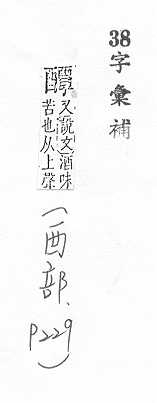 38字彙補
又說文酒味
苦也从上聲
(酉部、P229)